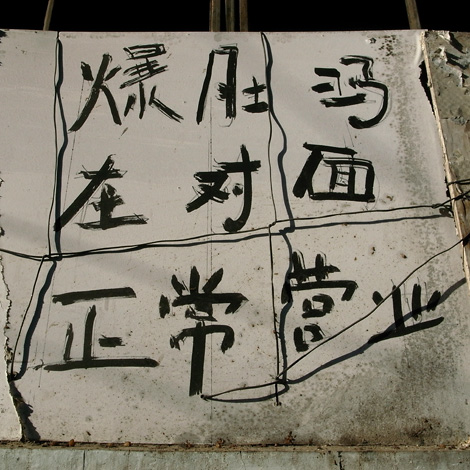 爆肚冯
在对面
正常营业